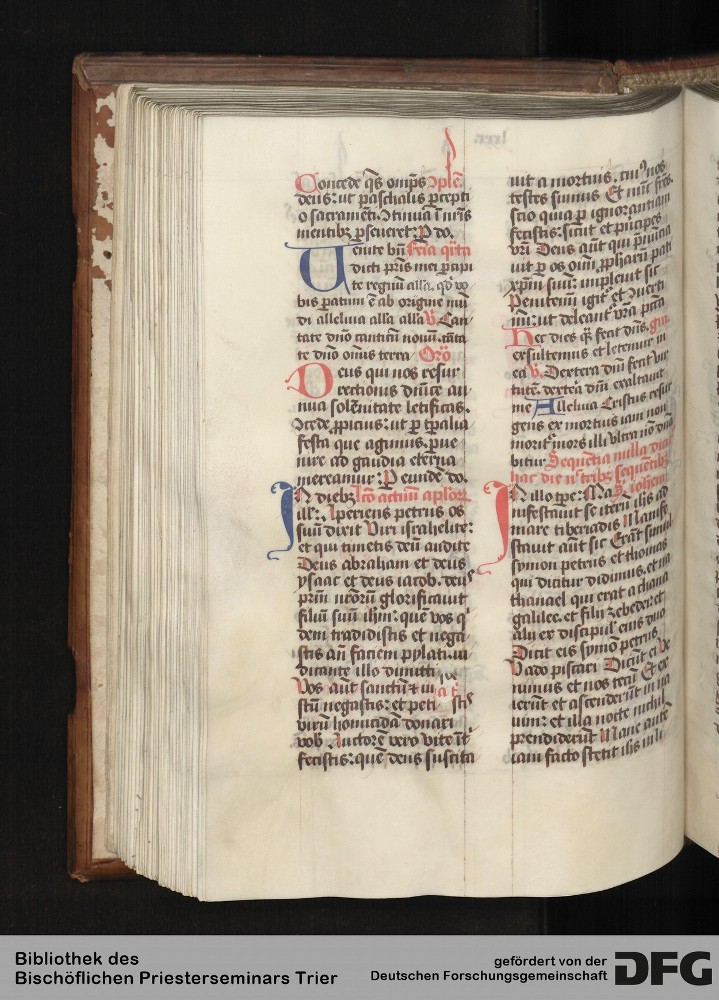 Concede q̄s om̄ps ꝯplē
deus: ut paschalis p̄cepti
o sacramēti ꝯtinua ī nr̄is
mentibꝫ perseueret: P do.
Uenite bn̄ Feria q̄rta
dicti pr̄is mei p̄cipi
te regnū all'a. qd' vo
bis paratum ē ab origine mū
di alleluia all'a all'a V Can
tate dn̄o canticū nouū. cāta
te dn̄o om̄is terra Or̄o
Deus qui nos resur
rectionis dn̄ice an
nua solēnitate letificas.
ꝯcede ꝓpicius: ut p̄ tp̄alia
festa que agimus. ꝑue
nire ad gaudia eterna
mereamur: P eundē do.
In diebꝫ lc̄o actuū apl'oꝝ
ill': Aperiens petrus os
suū dixit Viri israhelite:
et qui timetis deū audite
Deus abraham et deus
ysaac et deus iacob. deus
pr̄m nr̄orū glorificauit
filiū suū ihm̄: quē vos q'
dem tradidistis et nega
stis an̄ faciem pylati. iu
dicante illo dimitti
Vos aūt sanctū et iu
stū negastis: et peti stis
virū homicidā donari
vob' Auctorē vero vite īt'
fecistis: quē deus suscita
uit a mortuis. cui' nos
testes sumus Et nūc fr̄es.
scio quia p ignorantiam
fecistis: sicut et p̄ncipes
vr̄i Deus aūt qui p̄nūcia
uit p os oīm ꝓph̄arū pati
xp̄m suū: impleuit sic
Penitemī igit' et ꝯuerti
mī: ut deleant' vr̄a pcc̄a
Hec dies q̄ fecit dn̄s. gra
exsultemus et letemur in
ea V. Dextera dn̄i fecit vir
tutē. dextera dn̄i exaltauit
me Alleluia Cristus resur
gens ex mortuis iam non
morit' mors illi vltra nō dn̄a
bitur Sequētia nulla dicit'
hac die nͥ tribꝫ sequētibꝫ
In illo tp̄e: Ma S. iohem̄
nifestauit se iterū ih̄s ad
mare tiberiadis Manife
stauit aūt sic Erāt simul
symon petrus et thomas
qui dicitur didimus. et na
thanael qui erat a chana
galilee. et filij zebedei: et
alij ex discipul' eius duo
Dicit eis symō petrus
Vado piscari Dicūt ei Ve
nimus et nos tecū Et ex
ierūt et ascenderūt in na
uim: et illa nocte nichil
prendiderūt Mane autē
iam facto stetit ih̄s in li
Bibliothek des
Bischöflichen Priesterseminars Trier
gefördert von der
Deutschen Forschungsgemeinschaft DFG